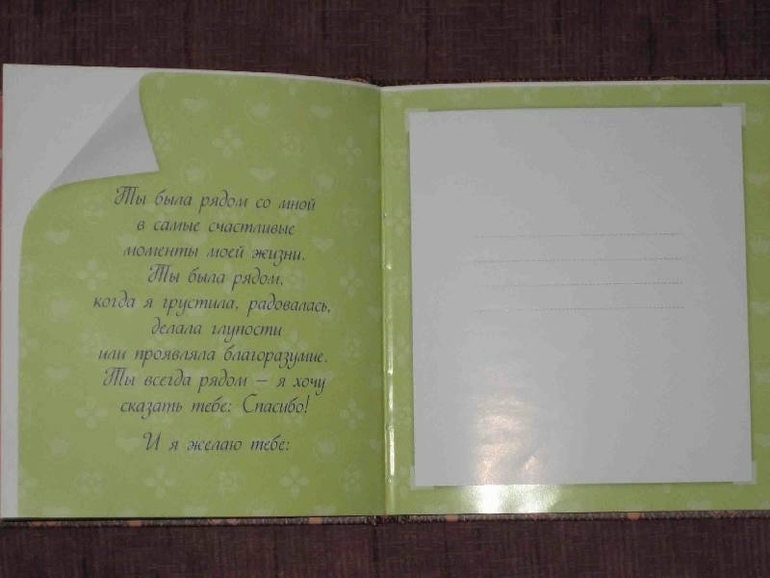 Ты была рядом со мной
в самые счастливые
моменты моей жизни.
Ты была рядом,
когда я грустила, радовалась,
делала глупости
или проявляла благоразумие.
Ты всегда рядом — я хочу
сказать тебе: Спасибо!
И я желаю тебе: